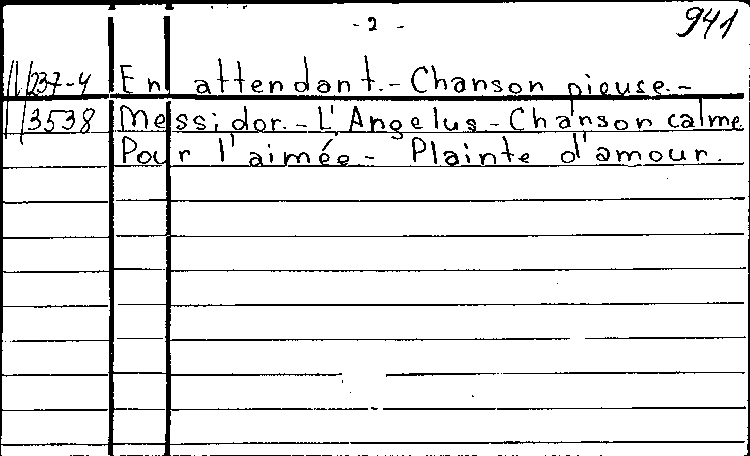 - 2 -
941
11/237-4 En attendant.- Chanson pieuse.-
11/3538 Messidor.- L'Angelus - Chanson calme
Pour l'aimée - Plainte d'amour.